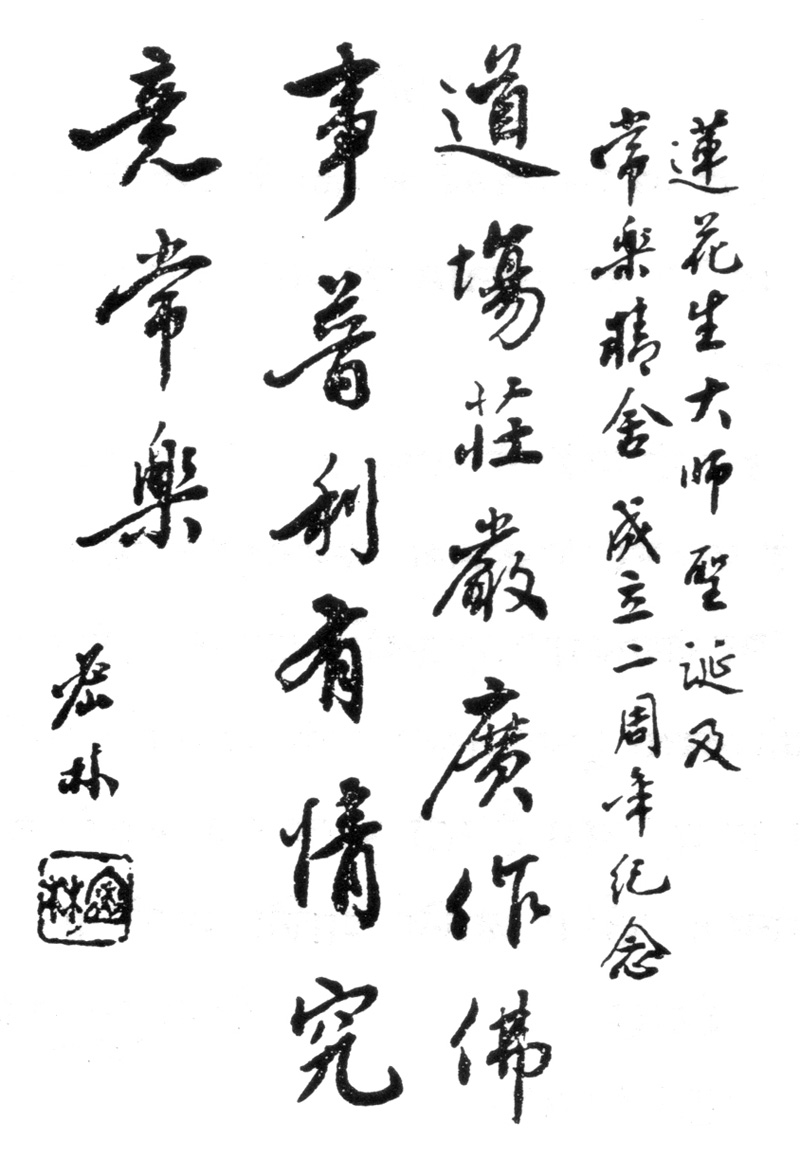 蓮花生大师聖誕及
常樂精舍成立二周年纪念
道場莊嚴廣作佛
事普利有情究
竟常樂
密林
林